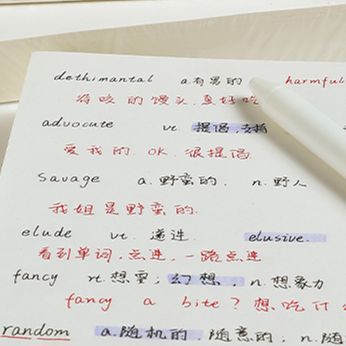 dethimantal a.有害的 harmful
将咬的馒头真好吃
advocute vt. 提倡,支持
爱我的.OK.很提倡
Savage a.野蛮的. n.野人
我姐是野蛮的.
elude vt. 逃避. elusive.
看到单词,点进,一路点进
fancy vt.想要; 幻想, n.想象力
fancy a bite? 想吃什
random a.随机的,随意的; n.随